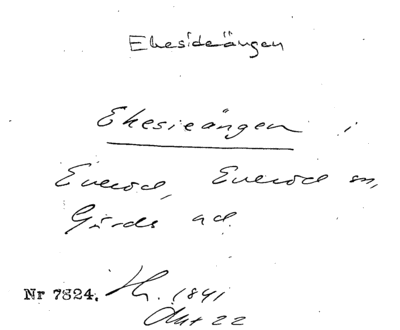 Ekesideängen
Ekesieängen i
Everöd, Everöd sn,
Gärds hd.
Nr 7824. 1841
Akt 22